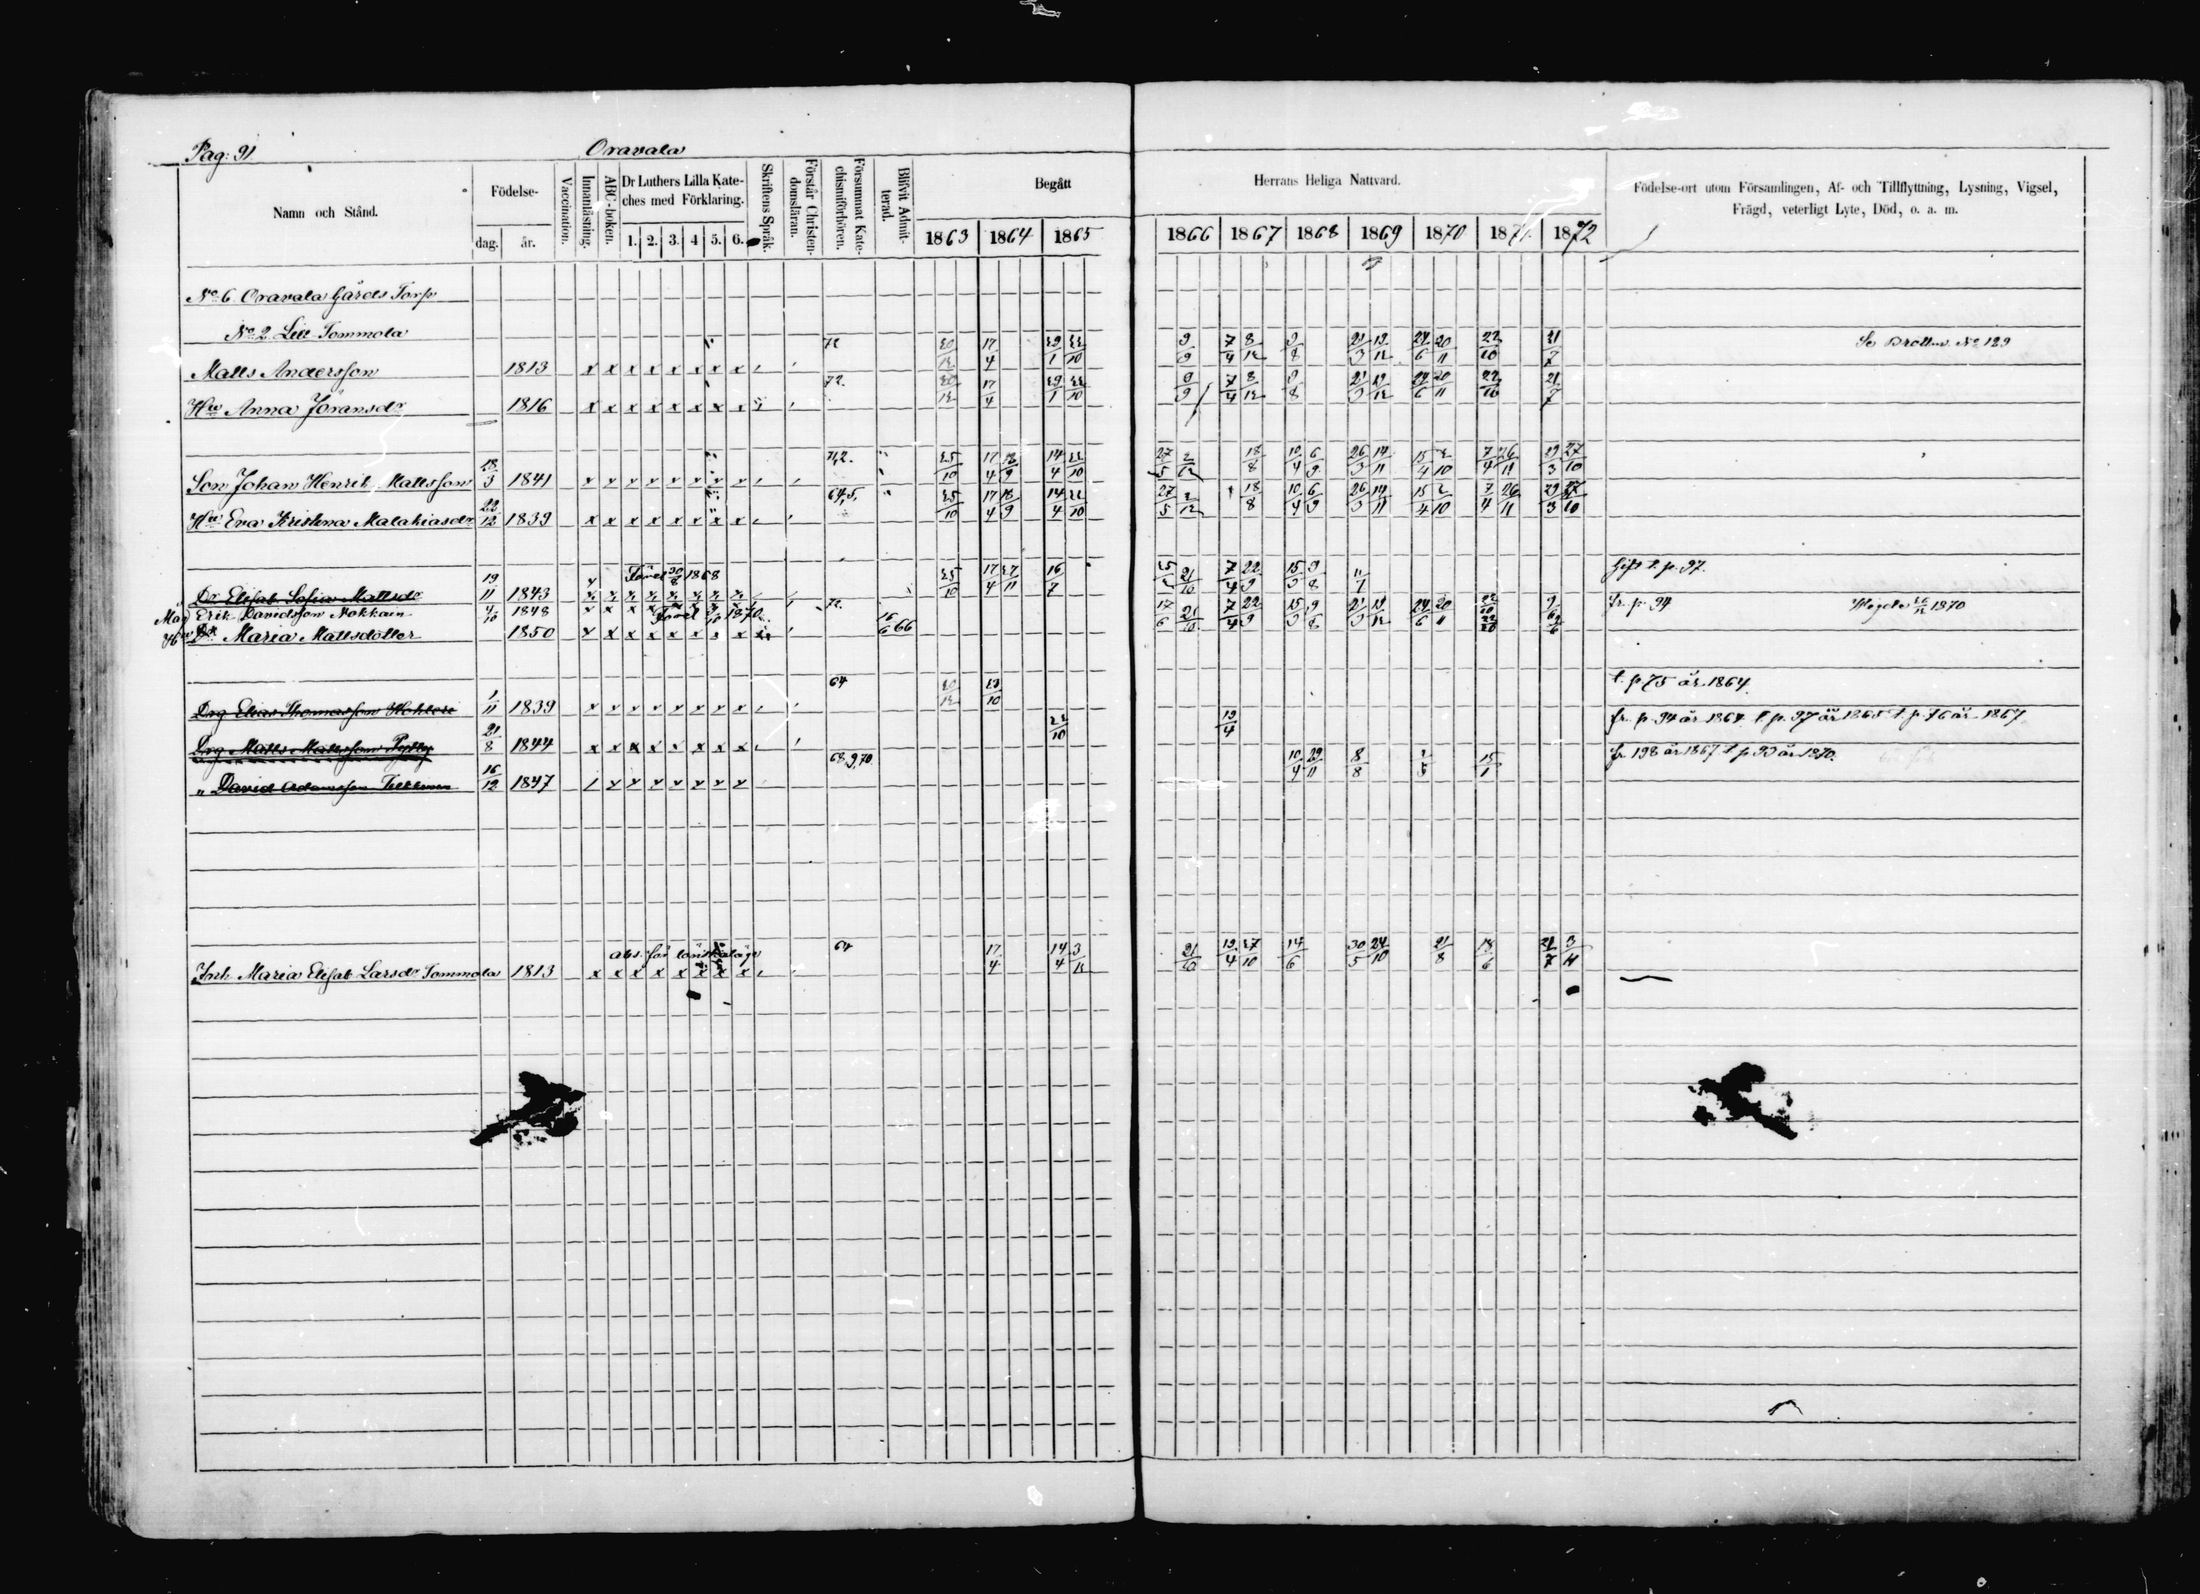 Pag: 91
Oravala
Namn och Stånd.
Födelse-
dag. år.
Vaccination.
Innanläsning.
ABC-boken.
Dr Luthers Lilla Kate-
ches med Förklaring.
1. 2. 3. 4 5. 6.
Skriftens Språk.
Förstår Christen-
domsläran.
Försummat Kate-
chismiförhören.
Blifvit Admit-
terad.
Begått
1863 1864 1865
Herrans Heliga Nattvard.
1866 1867 1868 1869 1870 1871 1872
Födelse-ort utom Församlingen, Af- och Tillflyttning, Lysning, Vigsel,
Frägd, veterligt Lyte, Död, o. a. m.
No 6 Oravala Gårds Torp
No 2 Lill Tommola
Matts Andersson 1813 x x x x x x x x 72 30/12 17/4 9/9 7/4 8/12 9/8 21/3 12/12 24/6 20/11 22/10 21/7 Se Brottm. No 129
Hu Anna Jöransdr 1816 x x x x x x x x 72. 30/12 17/4 9/9 7/4 8/12 9/8 21/3 12/12 24/6 20/11 22/10 21/7
Son Johan Henrik Mattsson 18/3 1841 x x x x x x x x 25/10 17/4 18/9 14/4 22/10 27/5 2/12 18/8 10/4 6/9 26/3 14/11 15/4 2/10 7/4 26/11 29/3 27/10
Hu Eva Kristina Malakiasdr 22/12 1839 x x x x x x x x 64,5, 25/10 17/4 18/9 14/4 22/10 27/5 2/12 18/8 10/4 6/9 26/3 14/11 15/4 2/10 7/4 26/11 29/3 27/10
Dr Elisab. Sofia Mattsdr 19/11 1843 1868 25/10 17/4 27/11 16/7 21/10 7/4 22/9 15/3 9/8 Gift t. p. 97.
Måg Erik Davidsson Nokkain 4/10 1848 72. 17/6 21/10 7/4 22/9 15/3 9/8 21/3 24/6 20/11 fr. p. 94 Vigde 1870
Hu Dr Maria Mattsdotter 1850 x x x x x x x x 16/6 66
Drg Elias Thomasson 1/11 1839 x x x x x x x x 64 30/12 23/10 t. p 75 år 1864
Drg Matts Mattsson 21/8 1844 x x x x x x x x 22/10 19/4 fr. p. 94 år 1864 t. p. 97 år 1865 t. p. 76 år 1867
" David Adamsson 16/12 1847 68,9,70 10/4 29/11 8/8 15/1 fr. 198 år 1867 t. p 93 år 1870.
Inh. Maria Elisab Larsdr Tommola 1813 x x x x x x x x 64 17/4 14/4 21/10 19/4 27/10 14/6 30/5 24/10 21/8 18/6